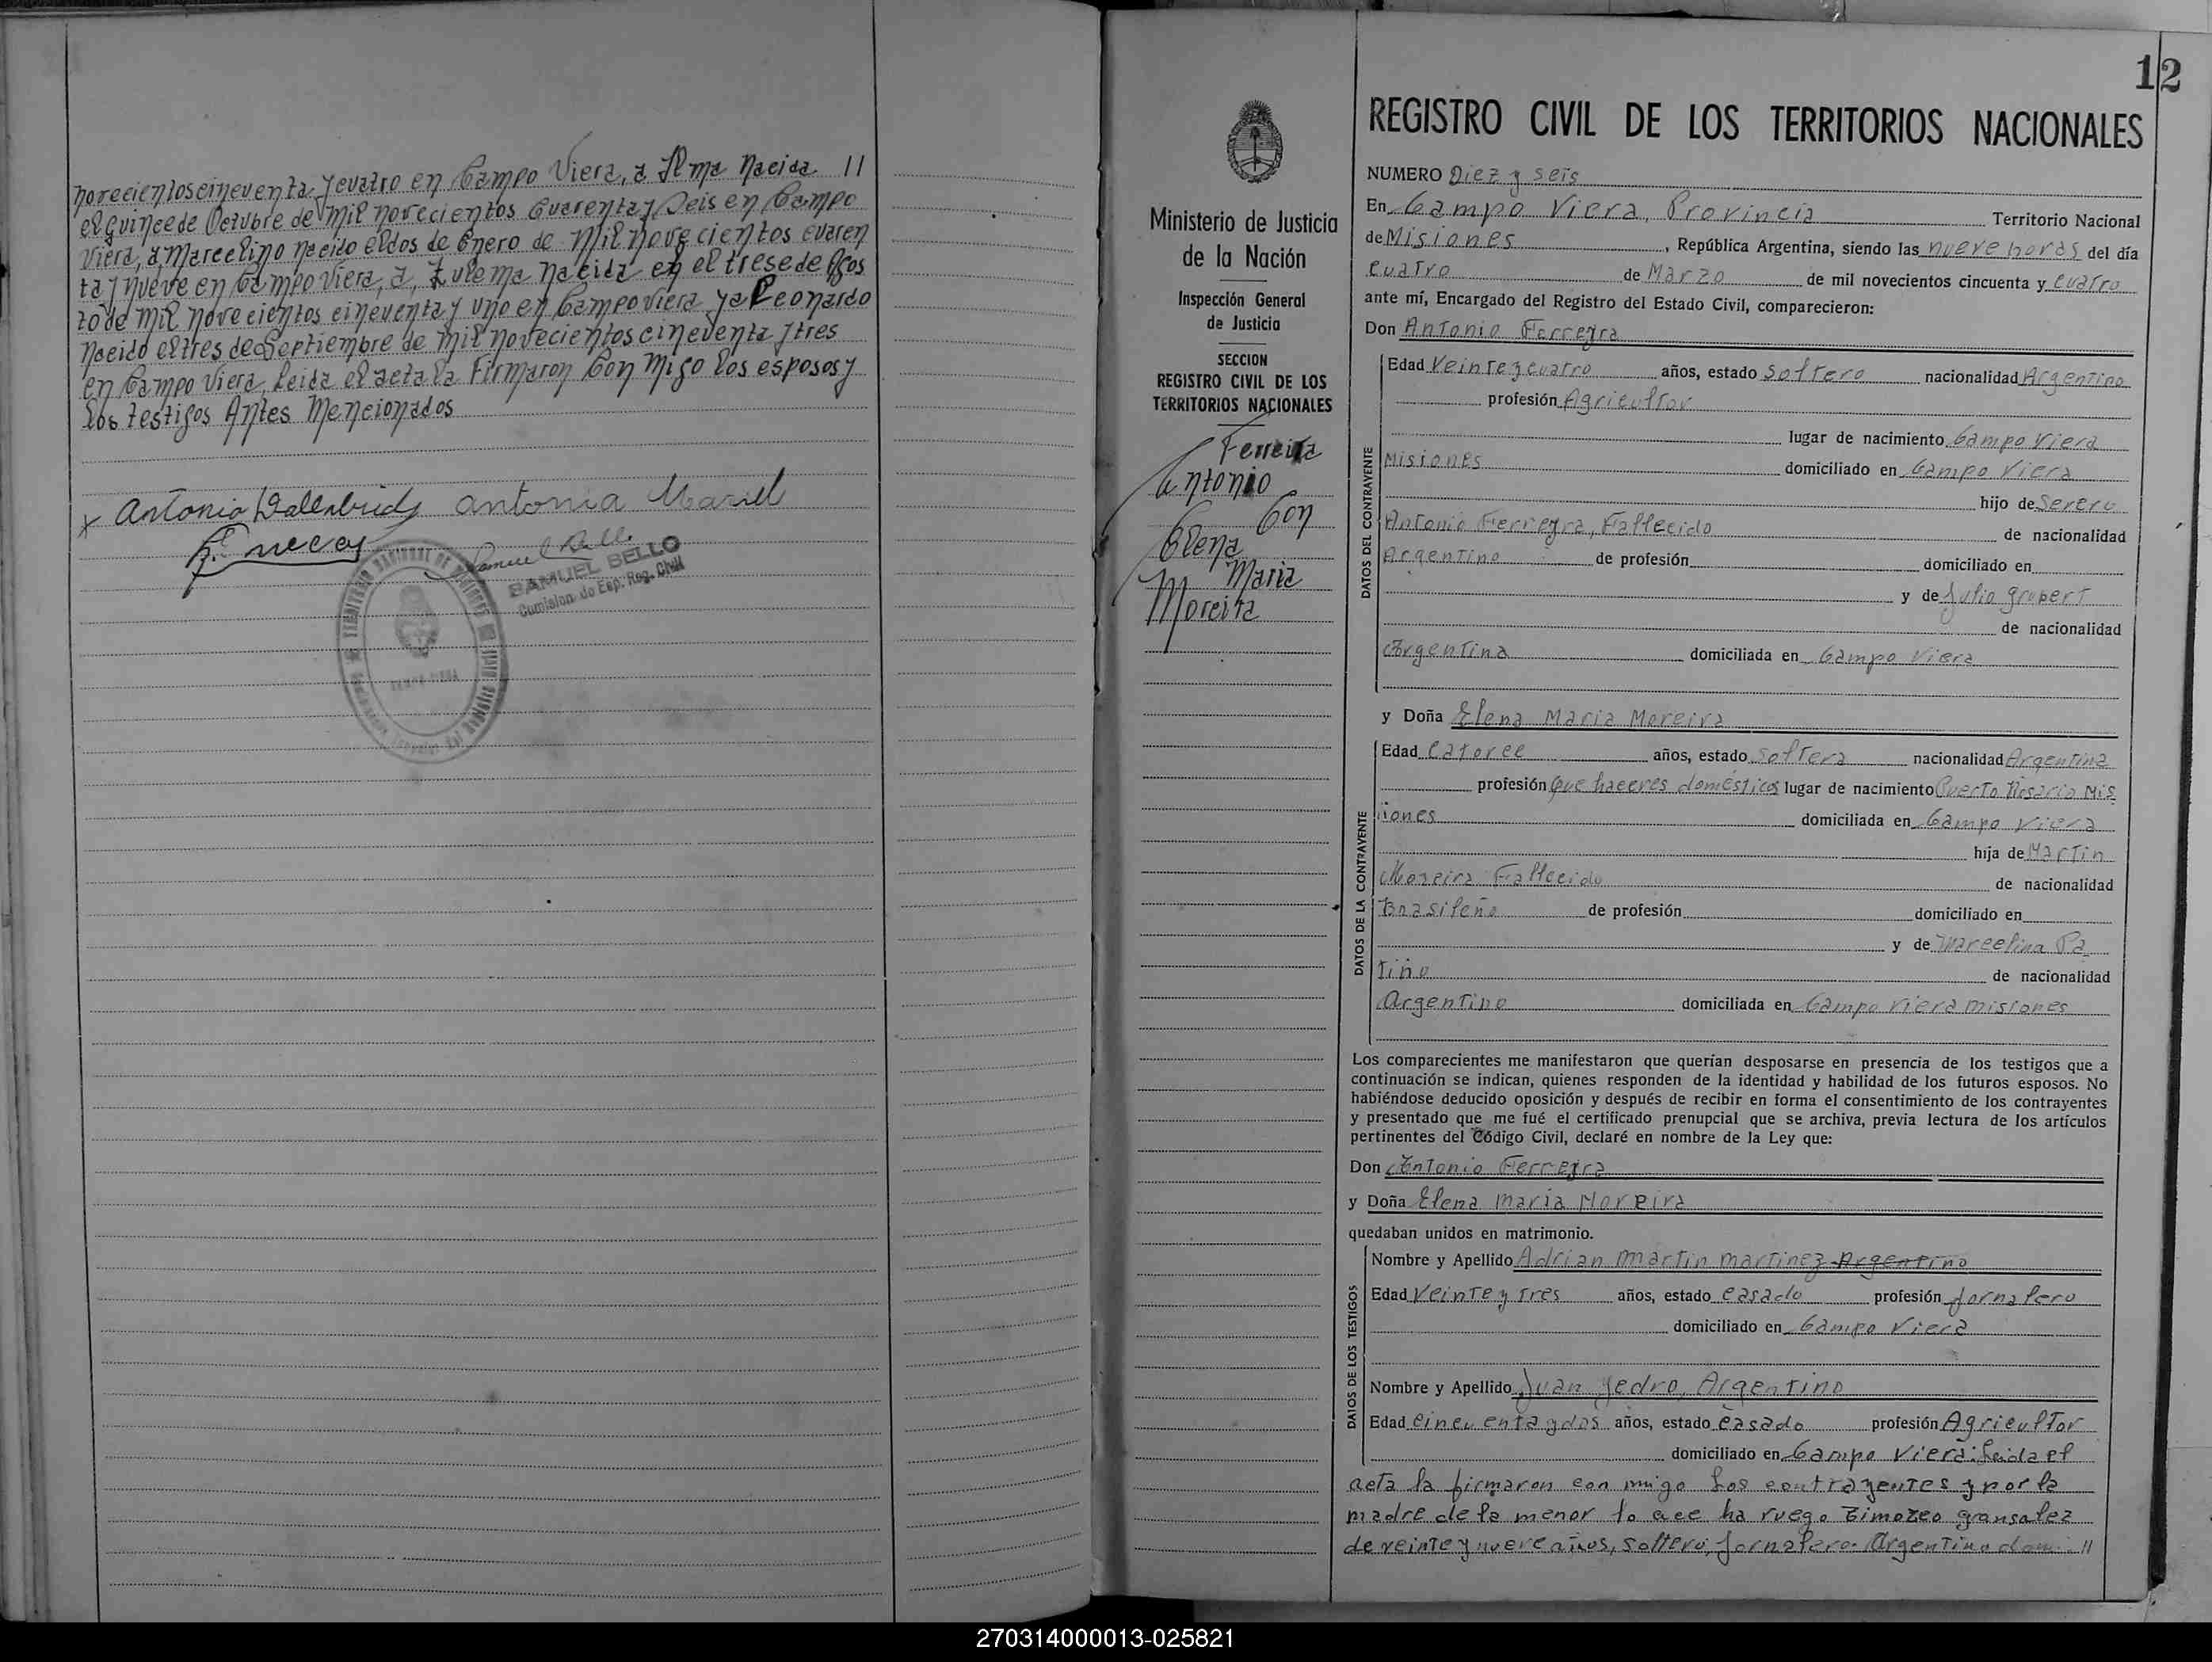 novecientos cincuenta y cuatro en Campo Viera, a Alma Nacida //
el quince de Octubre de mil novecientos cuarenta y Seis en Campo
Viera, a Marcelino nacido el dos de Enero de Mil Novecientos cuaren
ta y nueve en Campo Viera, a, Zulema nacida en el trese de Agos
to de mil novecientos cincuenta y uno en Campo Viera y a Leonardo
nacido el tres de Septiembre de mil novecientos cincuenta y tres
en Campo Viera, Leida el acta la Firmaron Con migo los esposos y
los testigos Antes Mencionados
x Antonio antonia
SAMUEL BELLO
Comision. de Esp. Reg. Civil
12
Ministerio de Justicia
de la Nación
Inspección General
de Justicia
SECCION
REGISTRO CIVIL DE LOS
TERRITORIOS NACIONALES
Ferreira
Antonio
Con
Elena
Maria
Moreira
REGISTRO CIVIL DE LOS TERRITORIOS NACIONALES
NUMERO Diez y seis
En Campo Viera, Provincia Territorio Nacional
de Misiones, República Argentina, siendo las nueve horas del día
cuatro de Marzo de mil novecientos cincuenta y cuatro
ante mí, Encargado del Registro del Estado Civil, comparecieron:
Don Antonio Ferreyra
DATOS DEL CONTRAYENTE
Edad Veinte y cuatro años, estado soltero nacionalidad Argentino
profesión Agricultor
lugar de nacimiento Campo Viera
Misiones domiciliado en Campo Viera
hijo de Severo
Antonio Ferreyra, Fallecido de nacionalidad
Argentino de profesión domiciliado en
y de Julia Grubert
de nacionalidad
Argentina domiciliada en Campo Viera
y Doña Elena Maria Moreira
DATOS DE LA CONTRAYENTE
Edad Catorce años, estado soltera nacionalidad Argentina
profesión Que haceres domésticos lugar de nacimiento Puerto Rosario Mis
iones domiciliada en Campo Viera
hija de Martin
Moreira Fallecido de nacionalidad
Brasileño de profesión domiciliado en
y de Marcelina Pa
tiño de nacionalidad
Argentino domiciliada en Campo Viera misiones
Los comparecientes me manifestaron que querían desposarse en presencia de los testigos que a
continuación se indican, quienes responden de la identidad y habilidad de los futuros esposos. No
habiéndose deducido oposición y después de recibir en forma el consentimiento de los contrayentes
y presentado que me fué el certificado prenupcial que se archiva, previa lectura de los artículos
pertinentes del Código Civil, declaré en nombre de la Ley que:
Don Antonio Ferreyra
y Doña Elena maria Moreira
quedaban unidos en matrimonio.
DATOS DE LOS TESTIGOS
Nombre y Apellido Adrian martin martinez Argentino
Edad Veinte y Tres años, estado casado profesión Jornalero
domiciliado en Campo Viera
Nombre y Apellido Juan Yedro, Argentino
Edad cincuenta y dos años, estado casado profesión Agricultor
domiciliado en Campo Viera: Leida el
acta la firmaron con migo Los contrayentes y por la
madre de la menor lo ace ha ruego Timoteo gransalez
de veinte y nueve años, soltero, Jornalero Argentino dom. //
270314000013-025821